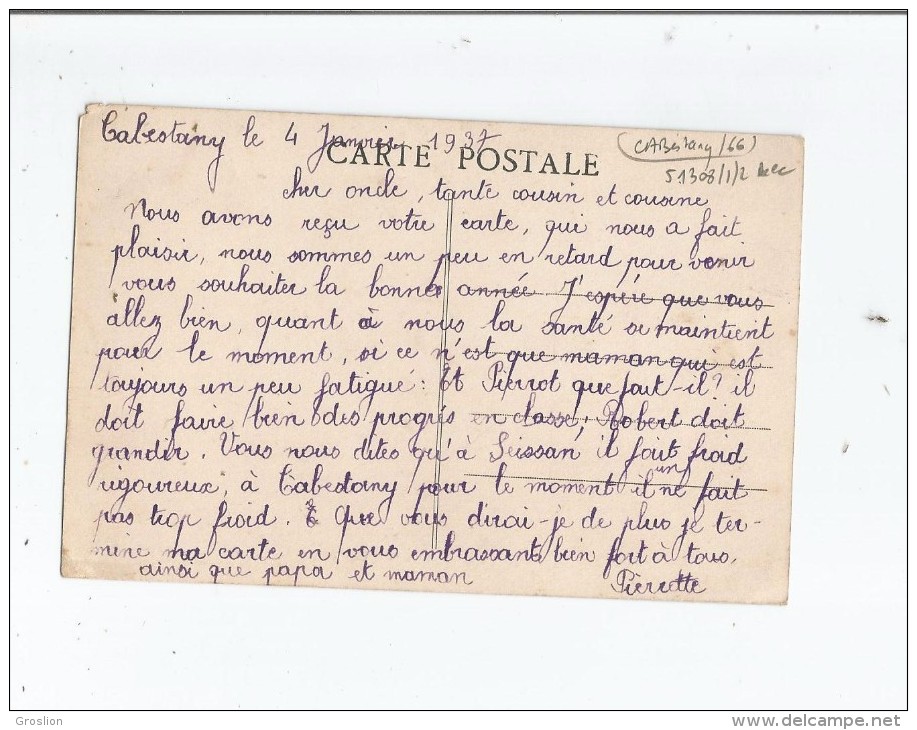 Cabestany le 4 Janvier 1937
CARTE POSTALE
(CABestany /66)
51308/1/2
cher oncle, tante cousin et cousine
Nous avons reçu votre carte, qui nous a fait
plaisir, nous sommes un peu en retard pour venir
vous souhaiter la bonne année J'espère que vous
allez bien, quant à nous la santé se maintient
pour le moment, si ce n'est que maman qui est
toujours un peu fatigué : Et Pierrot que fait-il? il
doit faire bien des progrès en classe, Robert doit
grandir. Vous nous dites qu'à Seissan il fait froid
rigoureux, à Cabestany pour le moment il ne fait
pas trop froid. Que vous dirai-je de plus je ter-
mine ma carte en vous embrassant bien fort à tous,
ainsi que papa et maman
Pierrette
Groslion
www.delcampe.net